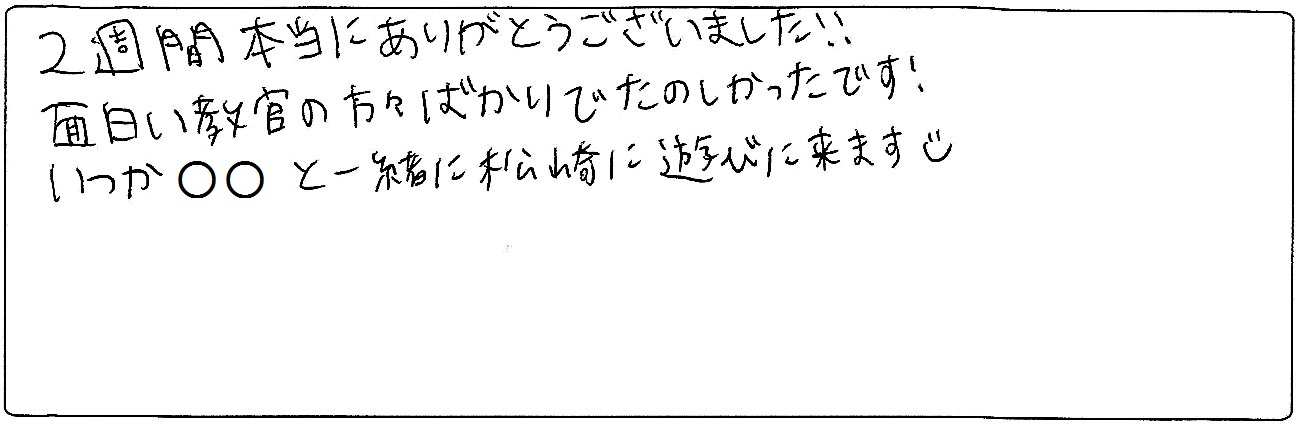 2週間本当にありがとうございました!!
面白い教官の方々ばかりでたのしかったです!
いつか○○と一緒に松崎に遊びに来ます